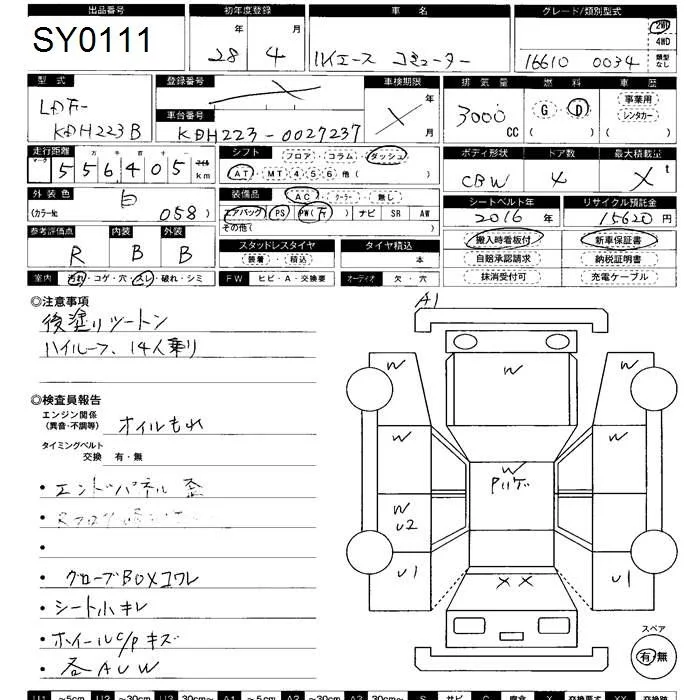 出品番号 初年度登録 車名 グレード/類別型式
SY0111 28年 4月 ハイエース コミューター 16610 0034 2WD 4WD 類型なし
型式 登録番号 車検期限 排気量 燃料 車歴
LDF- KDH223B X 年 月 3000 CC G D ( ) 事業用 レンタカー ( )
車台番号 KDH223-0027237
走行距離 シフト フロア・コラム・ダッシュ ボディ形状 ドア数 最大積載量
マーク 十万千百十一
556405 マイル km AT・MT 4 5 6 他( ) CBW 4 X t
外装色 装備品 AC・クーラー・無し シートベルト年 リサイクル預託金
白 (カラー№ 058) エアバッグ PS PW( ) ナビ SR AW 2016年 15620円
その他( )
参考評価点 内装 外装 スタッドレスタイヤ タイヤ積込 搬入時看板付 新車保証書
R B B 装着・積込 本 自賠承認請求 納税証明書
室内 汚れ・コゲ・穴・スレ・破れ・シミ FW ヒビ・A・交換要 オーディオ 欠・穴 抹消受付可 充電ケーブル
◎注意事項
後塗りツートン
ハイルーフ、14人乗り
◎検査員報告
エンジン関係
(異音・不調等) オイルもれ
タイミングベルト
交換 有・無
・エンドパネル 歪
・
・グローブBOXコワレ
・シート小キレ
・ホイールc/pキズ
・各AUW
A1
W
W
W
W
W
W
W
W
U2
U1
XX
U1
スペア
有・無
U1 ~5cm U2 ~30cm U3 30cm~ A1 ~5cm A2 ~30cm A3 30cm~ S サビ C 腐食 X 交換要す XX 交換跡